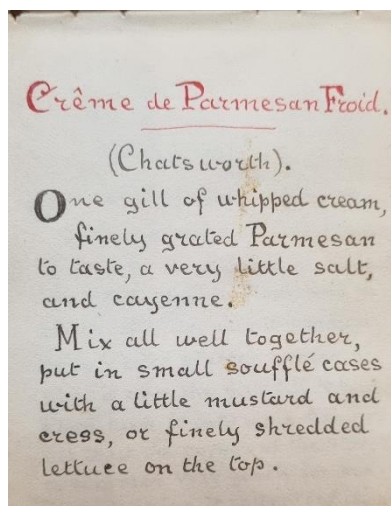 Crême de Parmesan Froid.
(Chatsworth).
One gill of whipped cream,
finely grated Parmesan
to taste, a very little salt,
and cayenne.
Mix all well together,
put in small soufflé cases
with a little mustard and
cress, or finely shredded
lettuce on the top.